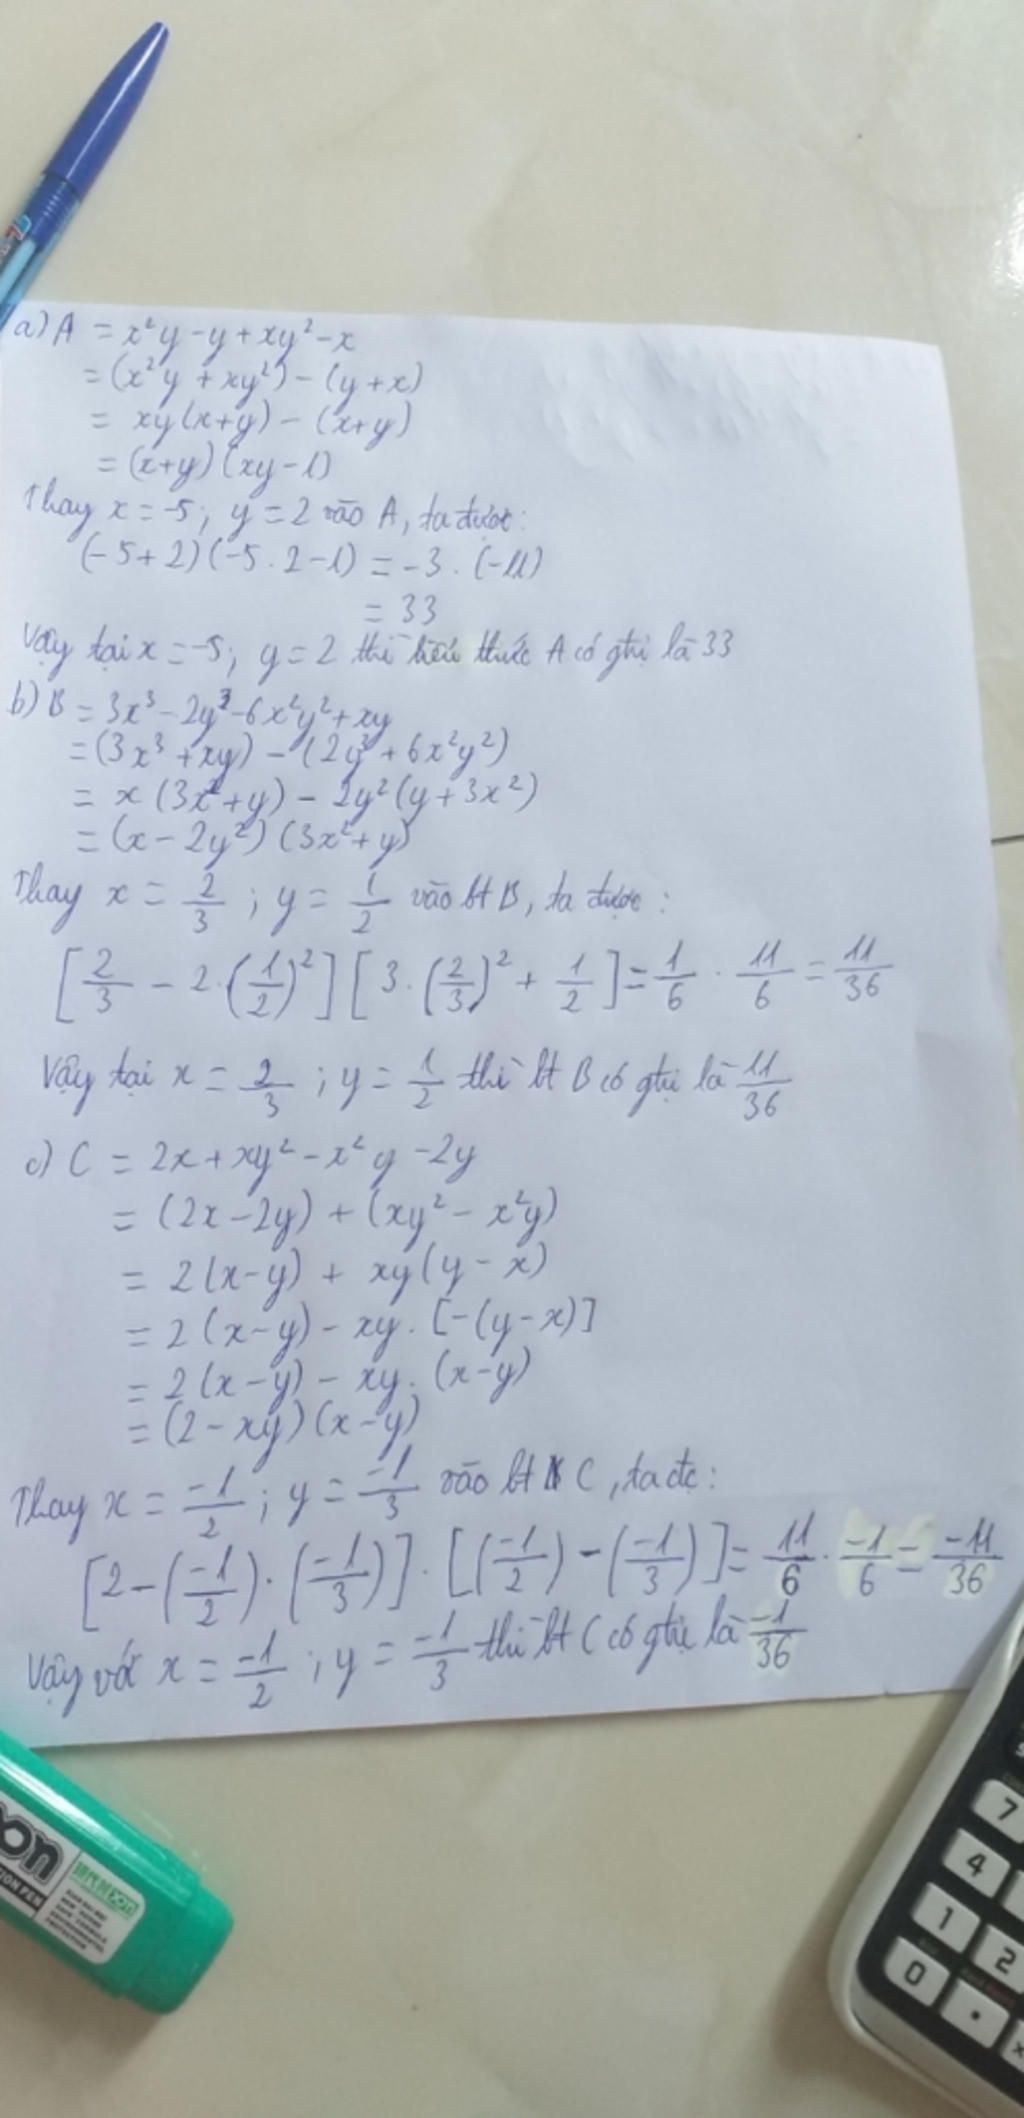 a) A = x²y - y + xy² - x
= (x²y + xy²) - (y + x)
= xy(x+y) - (x+y)
= (x+y)(xy-1)
Thay x = -5; y = 2 vào A, ta được:
(-5+2)(-5.2-1) = -3.(-11)
= 33
Vậy tại x = -5; y = 2 thì biểu thức A có gtrị là 33
b) B = 3x³ - 2y³ - 6x²y² + xy
= (3x³ + xy) - (2y³ + 6x²y²)
= x(3x²+y) - 2y²(y+3x²)
= (x - 2y²)(3x²+y)
Thay x = 2/3; y = 1/2 vào bt B, ta được:
[2/3 - 2.(1/2)²][3.(2/3)² + 1/2] = 1/6 . 11/6 = 11/36
Vậy tại x = 2/3; y = 1/2 thì bt B có gtrị là 11/36
c) C = 2x + xy² - x²y - 2y
= (2x - 2y) + (xy² - x²y)
= 2(x-y) + xy(y - x)
= 2(x-y) - xy.[-(y-x)]
= 2(x-y) - xy.(x-y)
= (2-xy)(x-y)
Thay x = -1/2; y = -1/3 vào bt C, ta đc:
[2-(-1/2).(-1/3)].[(-1/2)-(-1/3)] = 11/6 . -1/6 = -11/36
Vậy với x = -1/2; y = -1/3 thì bt C có gtrị là -1/36
on
ION PEN
7
4
1 2
0 .